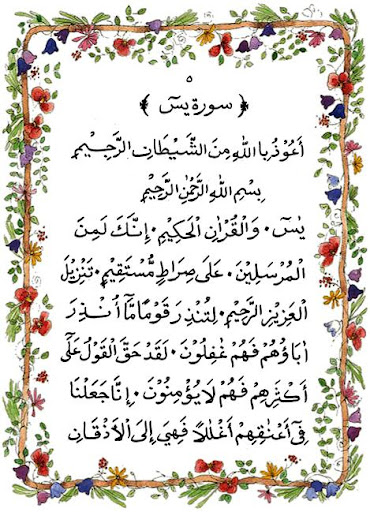 ٥
﴿ سورة يسٓ ﴾
أَعُوذُ بِاللهِ مِنَ الشَّيْطَانِ الرَّجِيْمِ
بِسْمِ اللهِ الرَّحْمٰنِ الرَّحِيْمِ
يٰسٓ ۰ وَالْقُرْاٰنِ الْحَكِيْمِ ۰ إِنَّكَ لَمِنَ
الْمُرْسَلِيْنَ ۰ عَلٰى صِرَاطٍ مُّسْتَقِيْمٍ ۰ تَنْزِيْلَ
الْعَزِيْزِ الرَّحِيْمِ ۰ لِتُنْذِرَ قَوْمًا مَّآ أُنْذِرَ
اٰبَاؤُهُمْ فَهُمْ غٰفِلُوْنَ ۰ لَقَدْ حَقَّ الْقَوْلُ عَلٰٓى
أَكْثَرِهِمْ فَهُمْ لَا يُؤْمِنُوْنَ ۰ إِنَّا جَعَلْنَا
فِيْٓ أَعْنٰقِهِمْ أَغْلٰلًا فَهِيَ إِلَى الْأَذْقَانِ